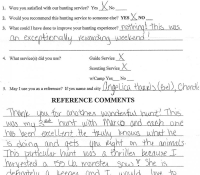 1. Were you satisfied with our hunting service? Yes X No
2. Would you recommend this hunting service to someone else? YES X NO
3. What could I have done to improve your hunting experience? nothing! This was
an exceptionally rewarding weekend!
4. What service(s) did you use? Guide Service X
Hunting Service X
w/Camp Yes No
5. May I use you as a reference? If yes name and city Angelica Harris (Bel),
REFERENCE COMMENTS
Thank you for another wonderful hunt! This
was my 3rd hunt with Marco and each one
has been excellent. He truly knows what he
is doing and gets you right on the animals.
This particular hunt was a thriller because I
harvested a 45 lb monster sow! She is
definitely a keeper and I would love to